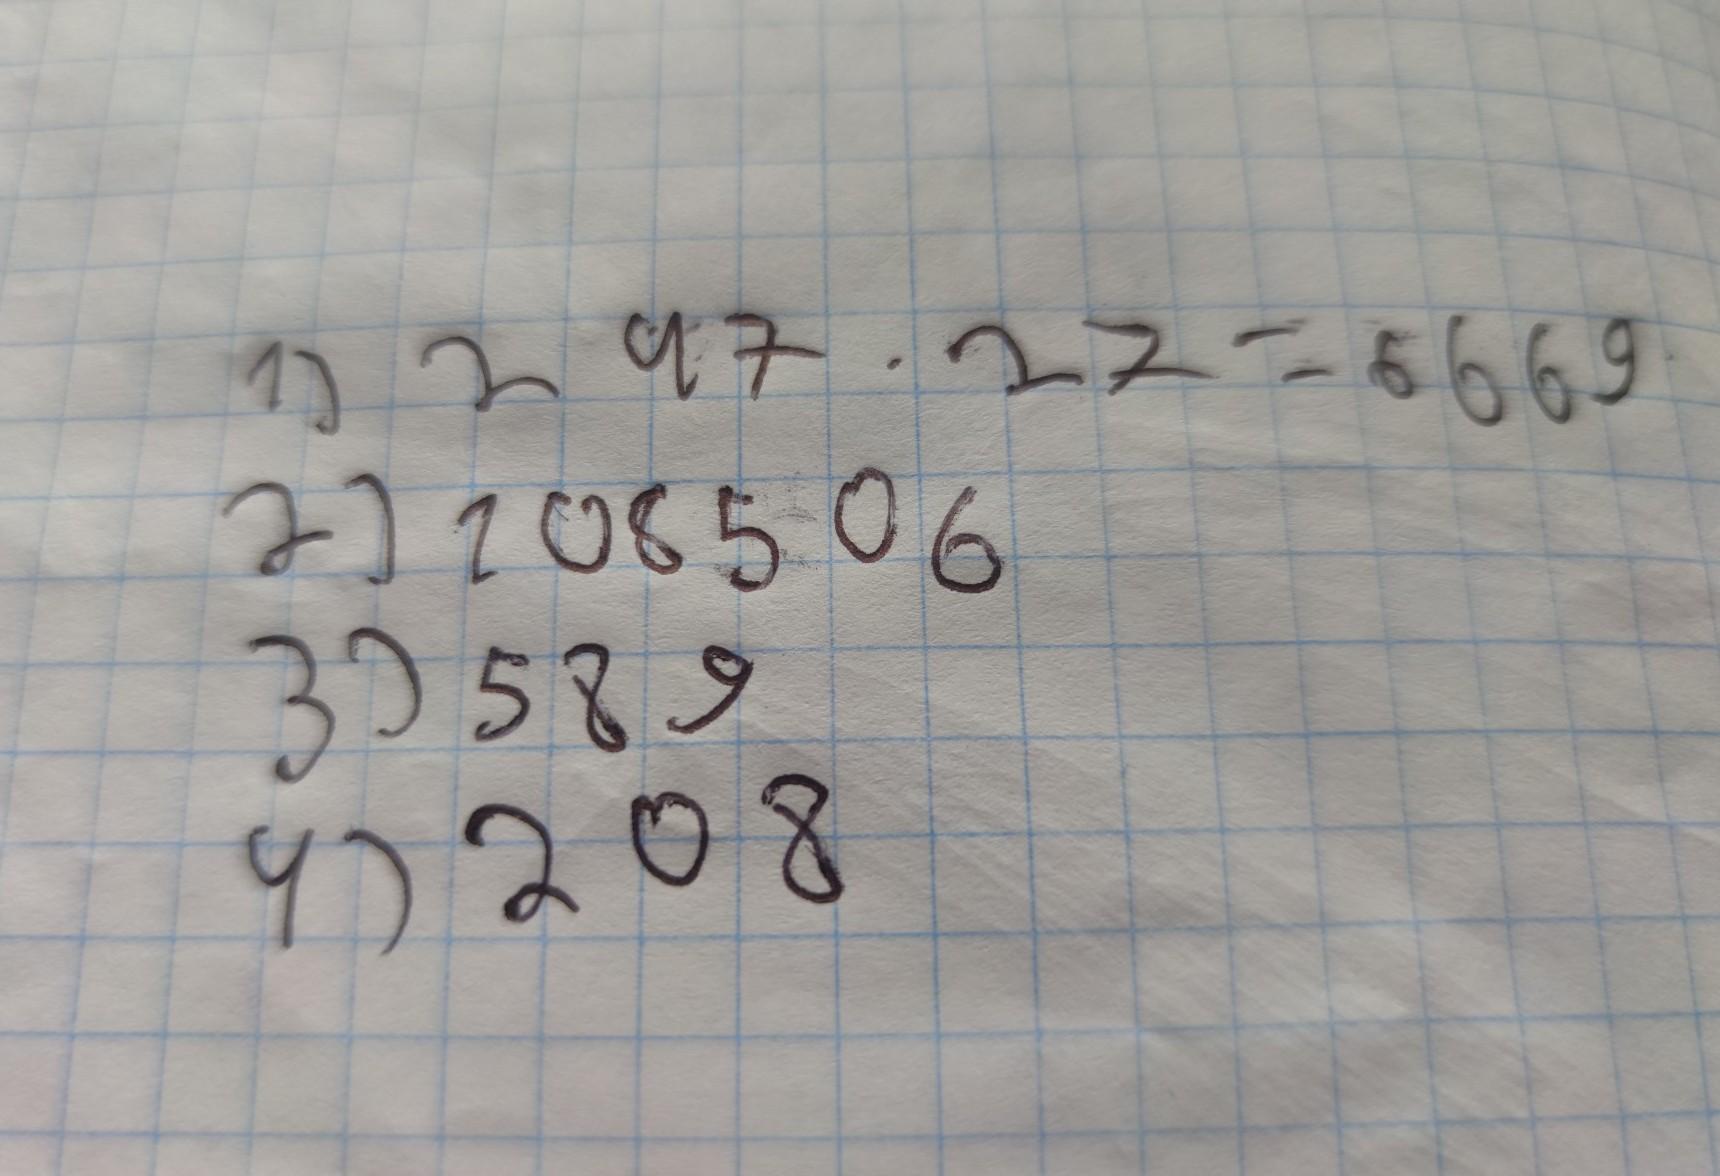 1) 247 · 27 = 6669
2) 108506
3) 589
4) 208